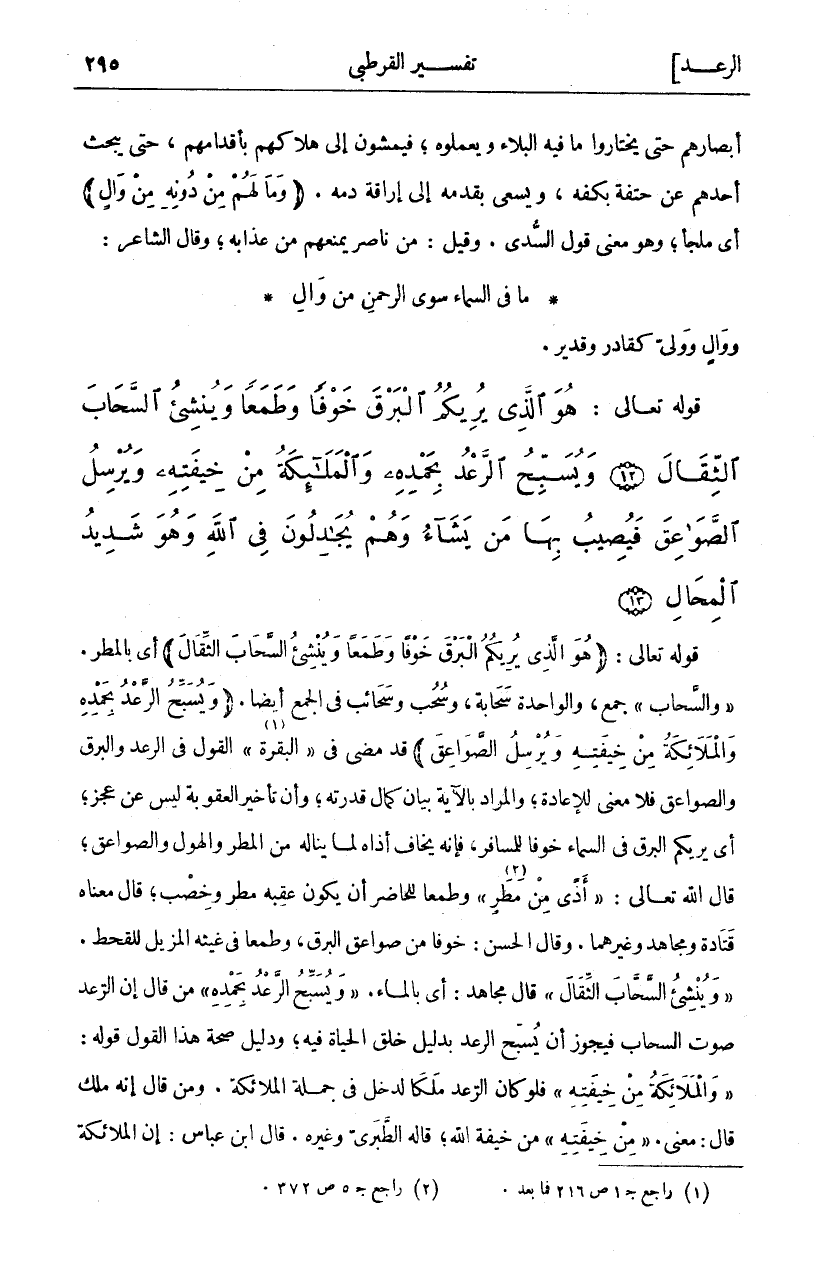 الرعـــد]
تفســـير القرطبى
٢٩٥
أبصارهم حتى يختاروا ما فيه البلاء ويعملوه ؛ فيمشون إلى هلاكهم بأقدامهم ، حتى يبحث
أحدهم عن حتفة بكفه ، ويسعى بقدمه إلى إراقة دمه . ﴿ وَمَا لَهُمْ مِنْ دُونِهِ مِنْ وَالٍ ﴾
أى ملجأ ؛ وهو معنى قول السُّدى . وقيل : من ناصر يمنعهم من عذابه ؛ وقال الشاعر :
* ما فى السماء سوى الرحمنِ من وَالِ *
ووَالٍ ووَلىّ كقادر وقدير .
قوله تعـالى : هُوَ ٱلَّذِى يُرِيكُمُ ٱلْبَرْقَ خَوْفًا وَطَمَعًا وَيُنشِئُ ٱلسَّحَابَ
ٱلثِّقَالَ ⑫ وَيُسَبِّحُ ٱلرَّعْدُ بِحَمْدِهِۦ وَٱلْمَلَـٰٓئِكَةُ مِنْ خِيفَتِهِۦ وَيُرْسِلُ
ٱلصَّوَٰعِقَ فَيُصِيبُ بِهَـا مَن يَشَآءُ وَهُمْ يُجَـٰدِلُونَ فِى ٱللَّهِ وَهُوَ شَـدِيدُ
ٱلْمِحَالِ ⑬
قوله تعالى : ﴿ هُوَ الَّذِى يُرِيكُمُ الْبَرْقَ خَوْفًا وَطَمَعًا وَيُنْشِئُ السَّحَابَ الثِّقَالَ ﴾ أى بالمطر .
« والسَّحاب » جمع ، والواحدة سَحَابة ، وسُحُب وسَحَائب فى الجمع أيضا . ﴿ وَيُسَبِّحُ الرَّعْدُ بِحَمْدِهِ
وَالْمَلَائِكَةُ مِنْ خِيفَتِـهِ وَيُرْسِلُ الصَّوَاعِقَ ﴾ قد مضى فى « البقرة » (١) القول فى الرعد والبرق
والصواعق فلا معنى للإعادة ؛ والمراد بالآية بيان كمال قدرته ؛ وأن تأخير العقوبة ليس عن عجز ؛
أى يريكم البرق فى السماء خوفا للسافر ، فإنه يخاف أذاه لمـا يناله من المطر والهول والصواعق ؛
قال الله تعـالى : « أَذًى مِنْ مَطَرٍ » (٢) وطمعا للحاضر أن يكون عقبه مطر وخِصْب ؛ قال معناه
قَتَادة ومجاهد وغيرهما . وقال الحسن : خوفا من صواعق البرق ، وطمعا فى غيثه المزيل للقحط .
« وَيُنْشِئُ السَّحَابَ الثِّقَالَ » قال مجاهد : أى بالمـاء . « وَيُسَبِّحُ الرَّعْدُ بِحَمْدِهِ » من قال إن الرعد
صوت السحاب فيجوز أن يُسبّح الرعد بدليل خلق الحياة فيه ؛ ودليل صحة هذا القول قوله :
« وَالْمَلَائِكَةُ مِنْ خِيفَتِـهِ » فلو كان الرّعد مَلَكًا لدخل فى جمـلة الملائكة . ومن قال إنه ملك
قال : معنى . « مِنْ خِيفَتِهِ » من خيفة الله ؛ قاله الطَّبَرىّ وغيره . قال ابن عباس : إن الملائكة
(١) راجع جـ ١ ص ٢١٦ فما بعد .
(٢) راجع جـ ٥ ص ٣٧٢ .